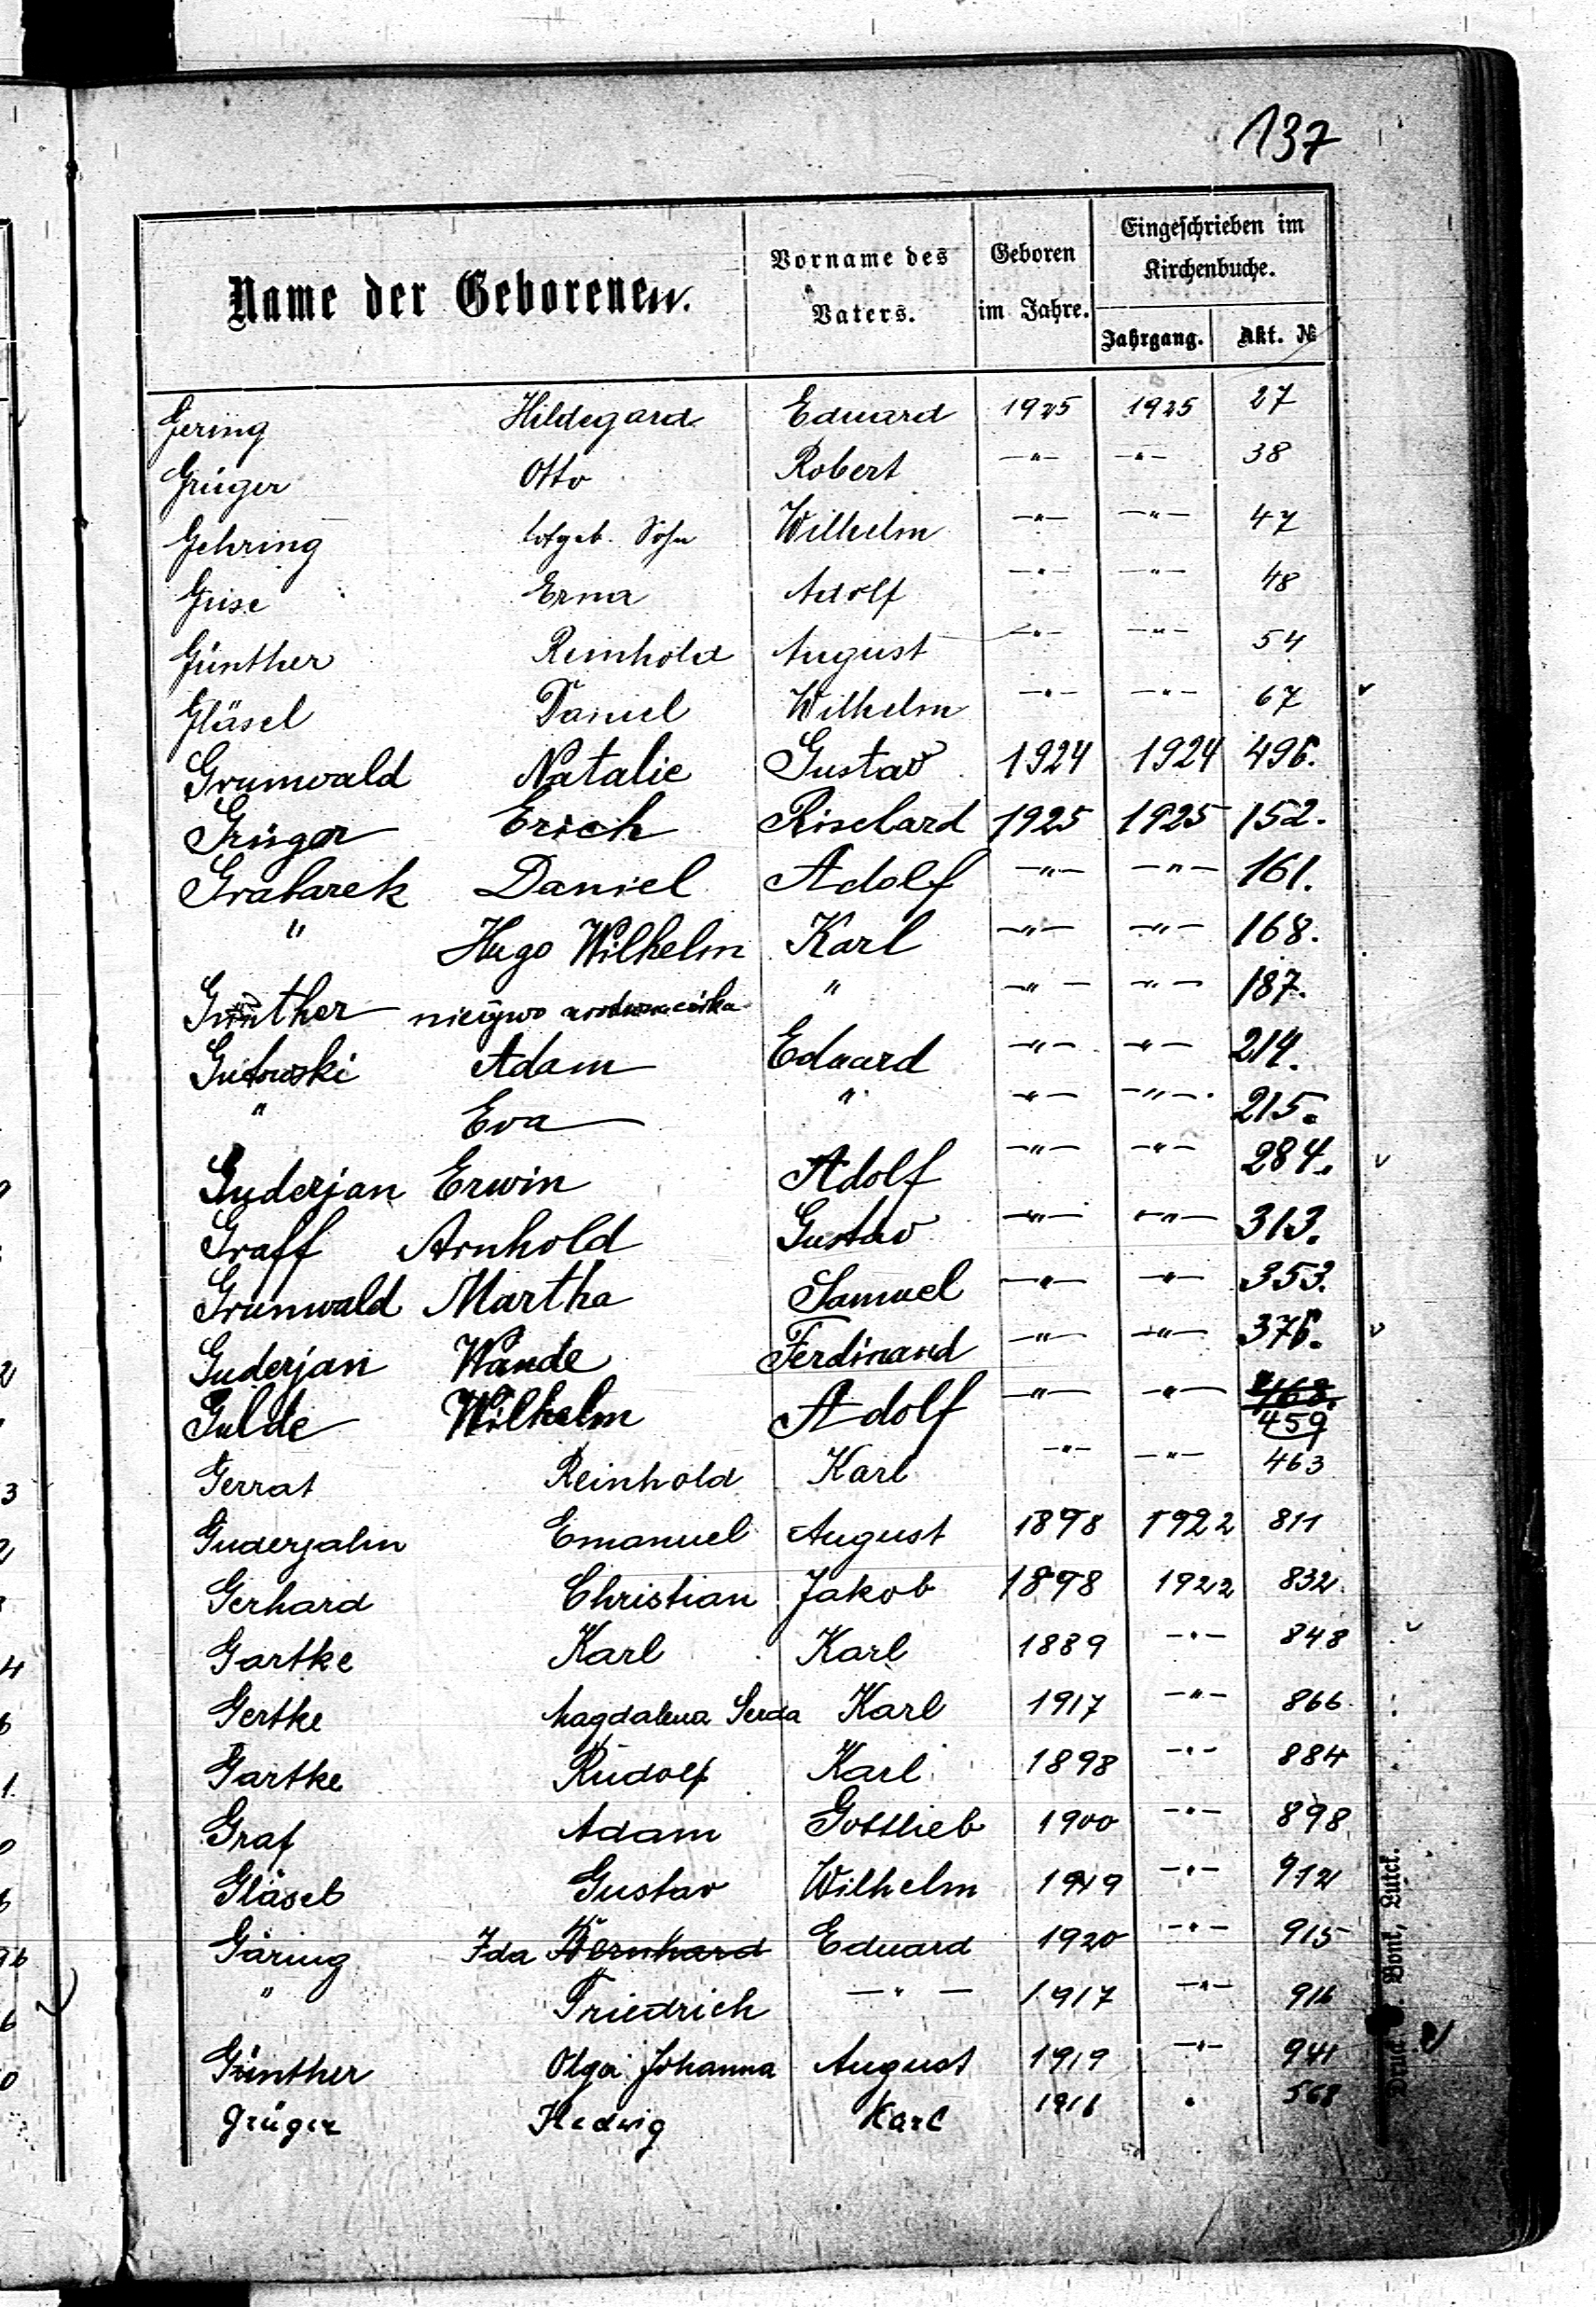 137
Name der Geborenen. Vorname des Vaters. Geboren im Jahre. Eingeschrieben im Kirchenbuche. Jahrgang. Akt. №
Gering Hildegard Eduard 1925 1925 27
Grüger Otto Robert —"— —"— 38
Gehring totgeb. Sohn Wilhelm —"— —"— 47
Grise Erna Adolf —"— —"— 48
Günther Reinhold August —"— —"— 54
Gläsel Daniel Wilhelm —"— —"— 67
Grunwald Natalie Gustav 1924 1924 496.
Grüger Erich 1925 1925 152.
Grabarek Daniel Adolf —"— —"— 161.
" Hugo Wilhelm Karl —"— —"— 168.
Günther córka " —"— —"— 187.
Gutowski Adam Eduard —"— —"— 214.
" Eva " —"— —"— 215.
Guderjan Erwin Adolf —"— —"— 284.
Graff Arnhold Gustav —"— —"— 313.
Grunwald Martha Samuel —"— —"— 353.
Guderjan Wande Ferdinand —"— —"— 376.
Gulde Wilhelm Adolf —"— —"— 468.
459
Gerrat Reinhold Karl —"— —"— 463
Guderjahn Emanuel August 1898 1922 811
Gerhard Christian Jakob 1898 1922 832
Gartke Karl Karl 1889 —"— 848
Gertke Magdalena Karl 1917 —"— 866
Gartke Rudolf Karl 1898 —"— 884
Graf Adam Gottlieb 1900 —"— 898
Gläsel Gustav Wilhelm 1919 —"— 912
Gäring Ida Bernhard Eduard 1920 —"— 915
" Friedrich —"— 1917 —"— 916
Günther Olga Johanna August 1919 —"— 941
Grüger Hedwig Karl 1916 " 568
Druck. Bont, Luck.